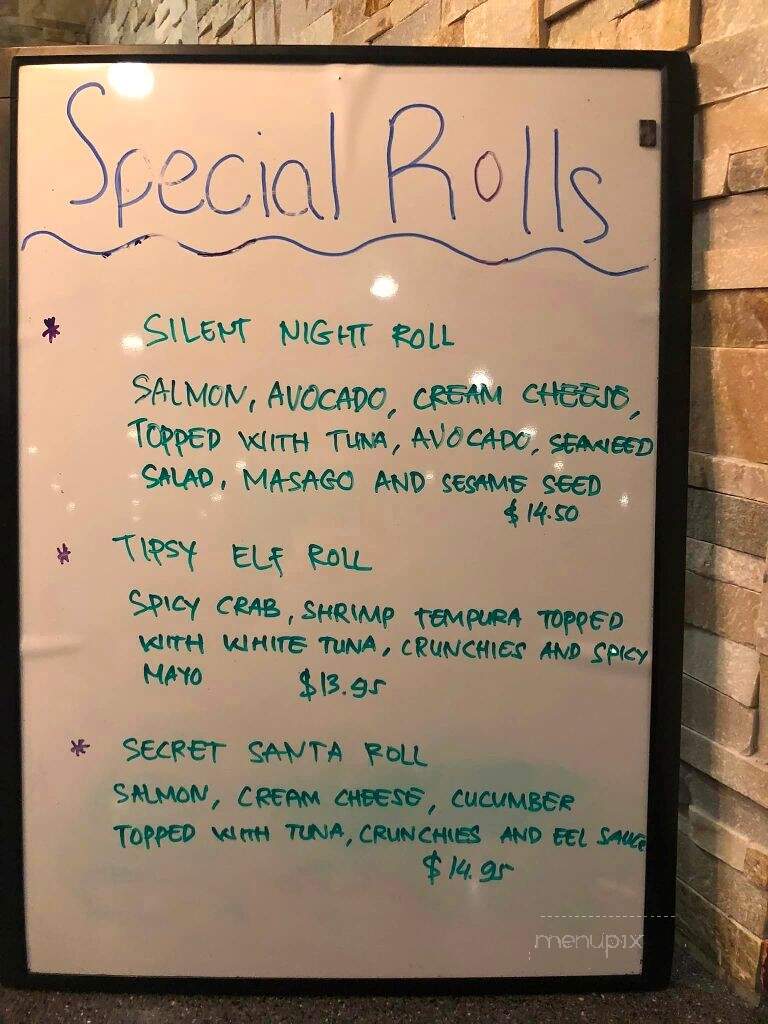 Special Rolls
* SILENT NIGHT ROLL
SALMON, AVOCADO, CREAM CHEESE,
TOPPED WITH TUNA, AVOCADO, SEAWEED
SALAD, MASAGO AND SESAME SEED
$14.50
* TIPSY ELF ROLL
SPICY CRAB, SHRIMP TEMPURA TOPPED
WITH WHITE TUNA, CRUNCHIES AND SPICY
MAYO $13.95
* SECRET SANTA ROLL
SALMON, CREAM CHEESE, CUCUMBER
TOPPED WITH TUNA, CRUNCHIES AND EEL SAUCE
$14.95
menupix